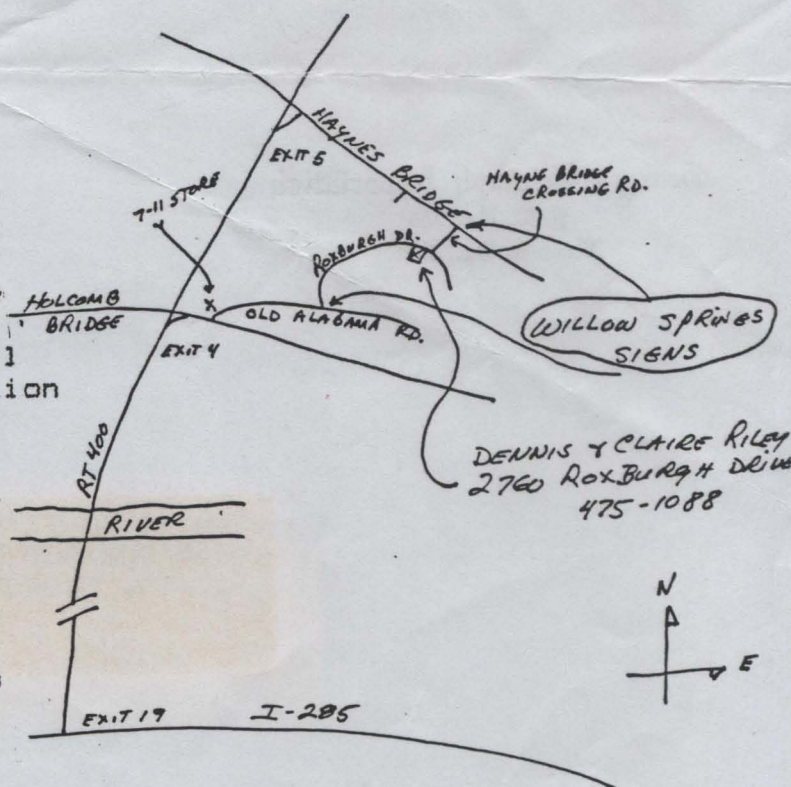 HAYNES BRIDGE
EXIT 5
HAYNE BRIDGE
CROSSING RD.
7-11 STORE
ROXBURGH DR.
HOLCOMB
BRIDGE
OLD ALABAMA RD.
WILLOW SPRINGS
SIGNS
EXIT 4
ion
RT 400
DENNIS & CLAIRE RILEY
2760 ROXBURGH DRIVE
475-1088
RIVER
N
E
EXIT 19
I-285